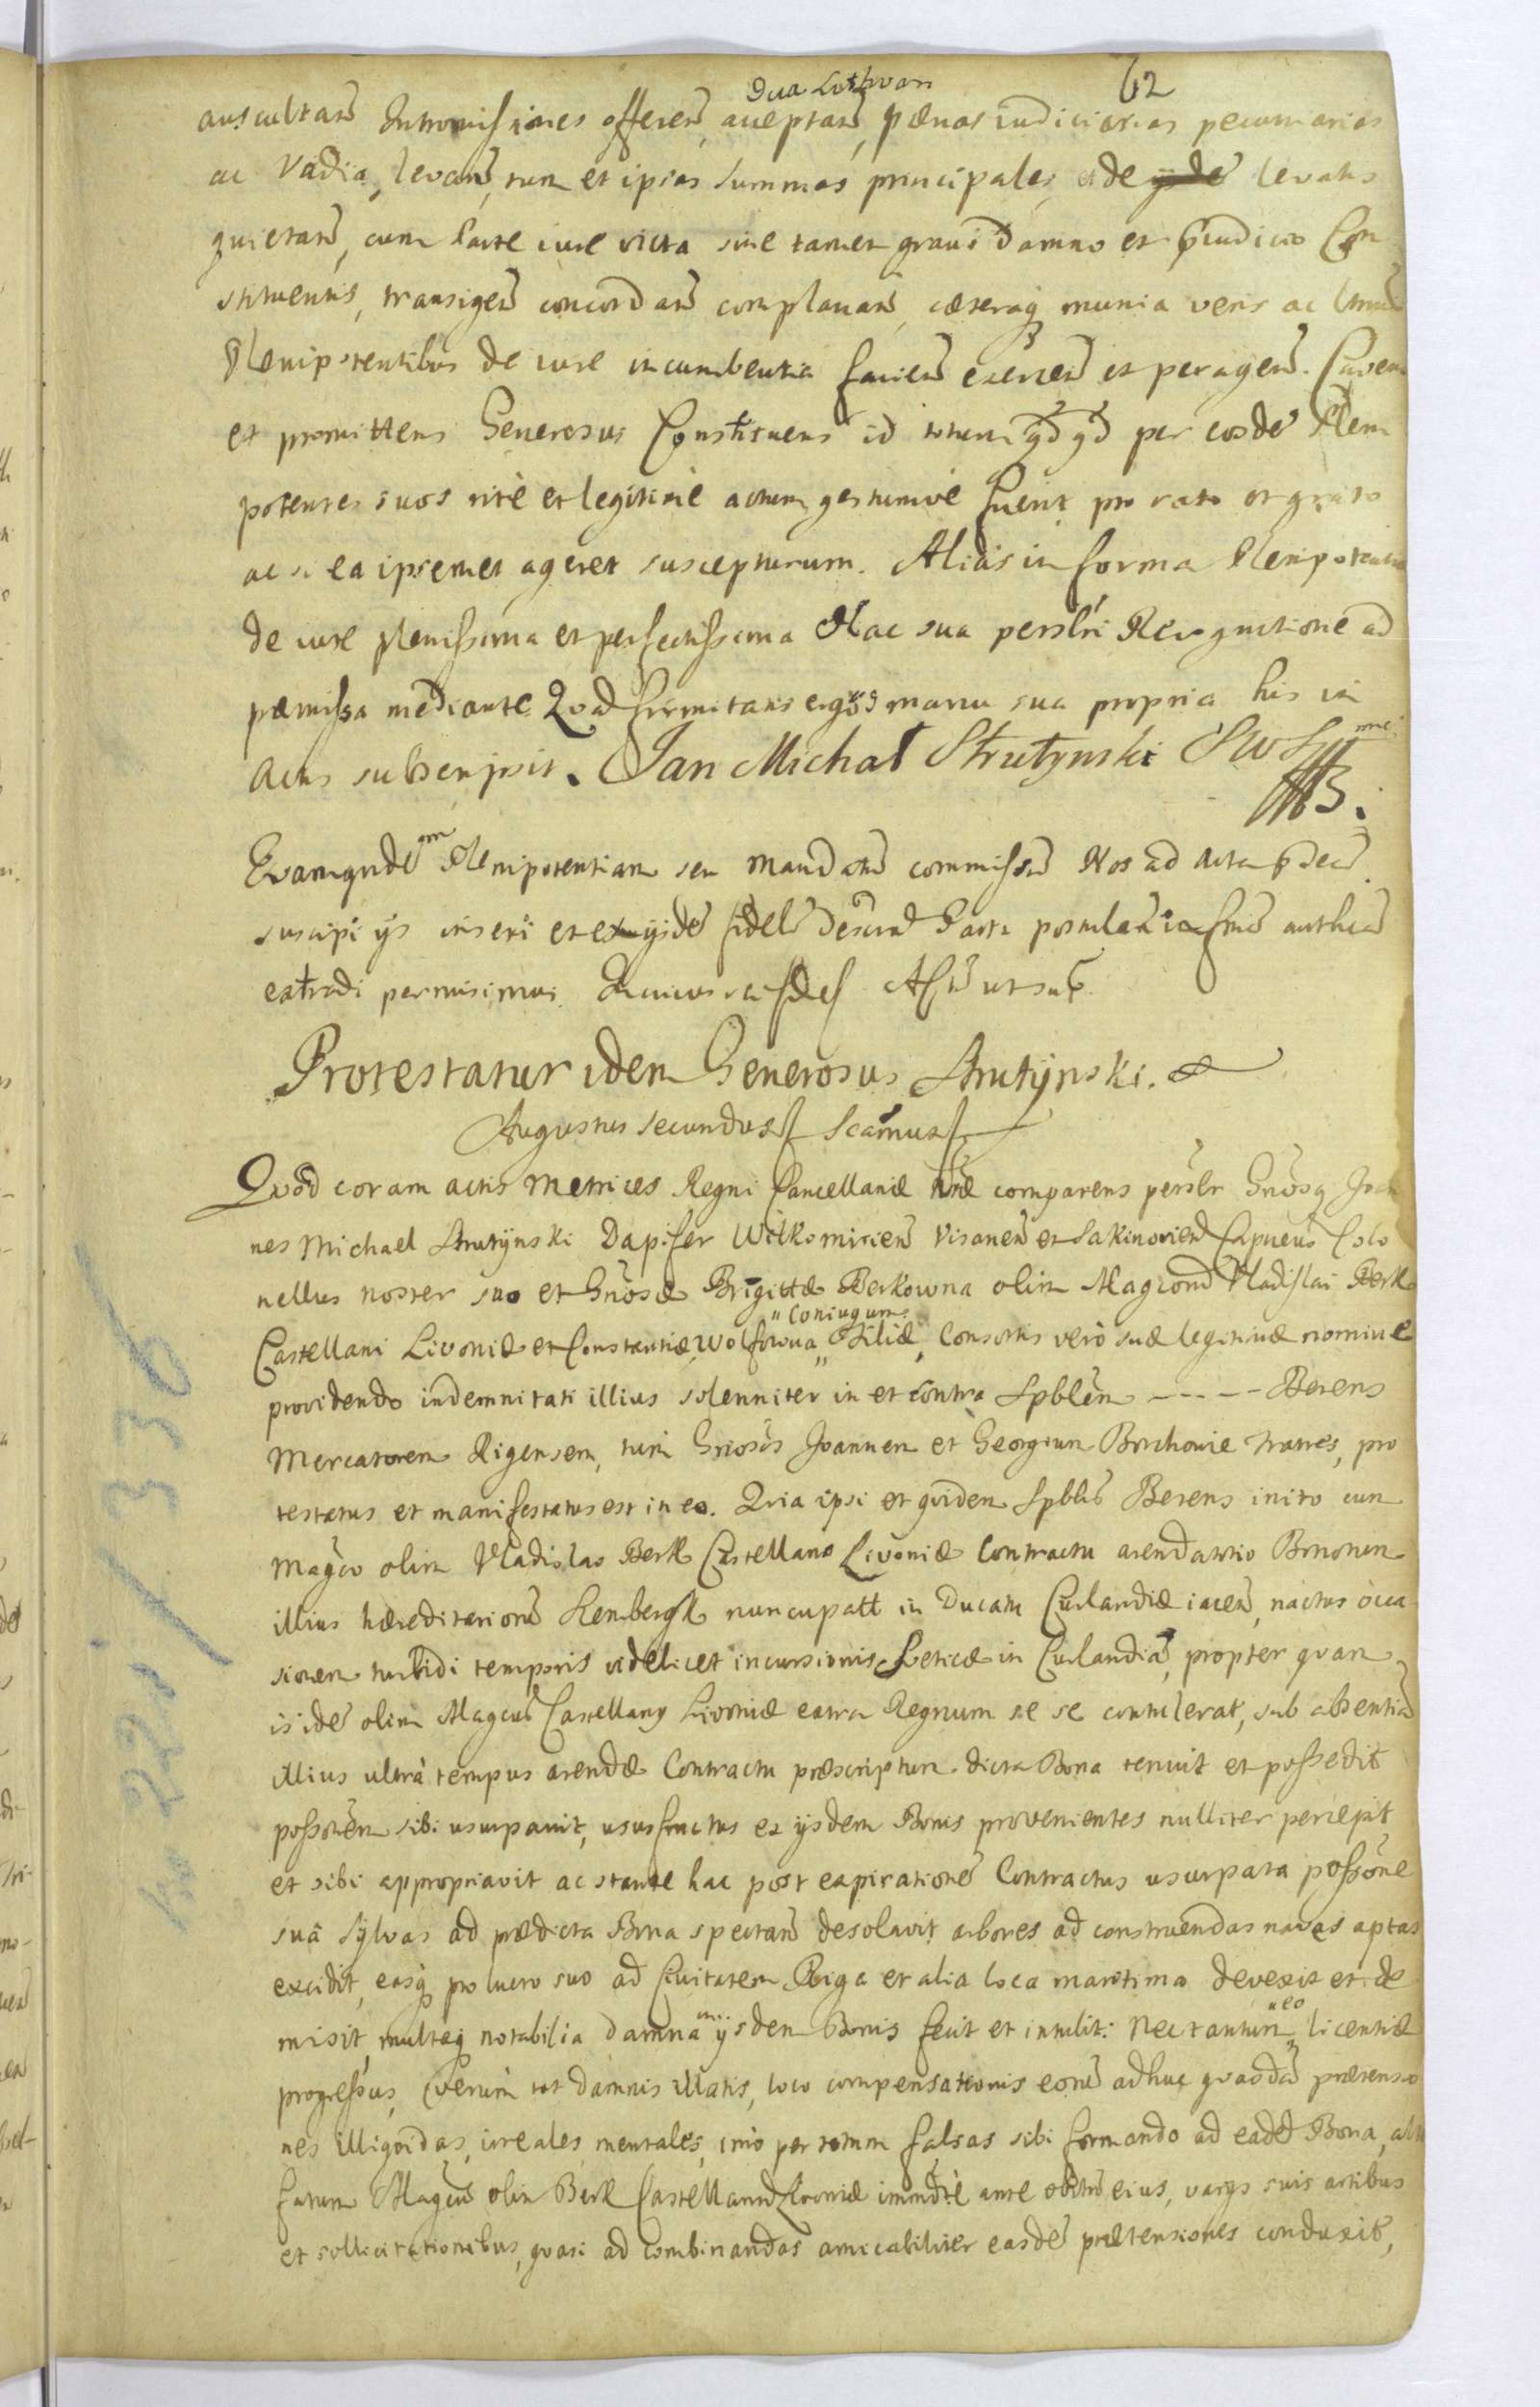 62
Dua Lothvan
auscultan͂ Intromissiones offeren͂, acceptan͂, pænas iudiciarias pecuniarias
ac Vadia, levan͂, tum et ipsas summas principales, et de levatis
quietan͂, cum parte iure victa sine tamen graui damno et p̄iudicio Con
stituentis, transigen͂ concordan͂ complanan͂, cæteraq̨ munia veris ac
Plenipotentibus de iure incumbentia facien͂ exercen͂ et peragen͂. Caven
et promittens Generosus Constituens id totum qd̄ qd̄ per eosde͂ Pleni
potentes suos ritè et legitimè actum gestumvè fuerit pro rato et grato
ac si ea ipsemet ageret suscepturum. Aliàs in forma Plenipotentiæ
de iure plenissima et perfectissima Hac sua persl̄ri Recognitione ad
præmissa mediante. Quod firmitatis ergò manu sua propria his in
Actis subscripsit. Jan Michał Strutynski S W W mp
Evamqnde͂ Plenipotentiam seu Mandatu͂ commissu͂ Nos ad Acta p̄dca͂
suscipi ijs inseri et ex ijsde͂ fidel͂ Parti postulan͂ authen͂
extradi permisimus. In cuius rei fide͂ Actu͂ ut sup̄.
Protestatur idem Generosus Strutÿnski.
Augustus secundus Scamus
Quod coram actis Metrices Regni Cancellariæ nr̄æ comparens persl̄r Gn̄osq̨ Joan
nes Michael Strutÿnski Dapifer Wiłkomirien͂ Visanen͂ et Sakinovien͂ Capneus Colo
nellus noster suo et Gn̄osæ Brigittæ Berkowna olim Magcorū Vladislai Berk
Castellani Livoniæ et Constantiæ Wolfowna „Coniugum„ Filiæ, Consortis verò suæ legitimæ nomine
providendo indemnitati illius solenniter in et contra Spblem ----- Berens
Mercatorem Rigensem, tum Gn̄osos Joannem et Georgium Borchowie fratres, pro
testatus et manifestatus est in eo. Quia ipsi et quidem Spblis Berens inito cum
Magco olim Vladislao Berk Castellano Livoniæ Contractu arendatorio Bonorum
illius hæreditarioru͂ Lembergk nuncupatt in Ducatu Curlandiæ iacen͂, nactus occa
sionem turbidi temporis videlicet incursionis Sveticæ in Curlandia͂, propter quam
is ide͂ olim Magcus Castellanq̨ Livoniæ extra Regnum se se contulerat, sub absentia͂
illius ultrà tempus arendæ Contractu præscriptum dicta Bona tenuit et possedit
possone͂m sibi usurpavit, ususfructus ex ijsdem Bonis provenientes nulliter percepit
et sibi appropriavit ac stante hac post expiratione͂ Contractus usurpata possōne
suâ sÿlvas ad prædicta Bona spectan͂ desolavit arbores ad construendas naves aptas
excidit, easq̨ pro lucro suo ad Civitatem Riga et alia loca maritima devexit et de
misit, multaq̨ notabilia damna in ijsdem Bonis fecit et intulit: Nec tantum „eo„ licentiæ
progressus, Verùm tot damnis illatis, loco compensationis eoru͂ adhuc quasda͂ prætensio
nes illiquidas, irreales mentales, imò per totum falsas sibi formando ad eade͂ Bona,
fatum Magcu͂ olim Berk Castellanu͂ Livoniæ immdte ante obitu͂ eius, varijs suis artibus
et sollicitationibus, quasi ad combinandas amicabiliter easde͂ prætensiones conduxit,
No 22 / 336